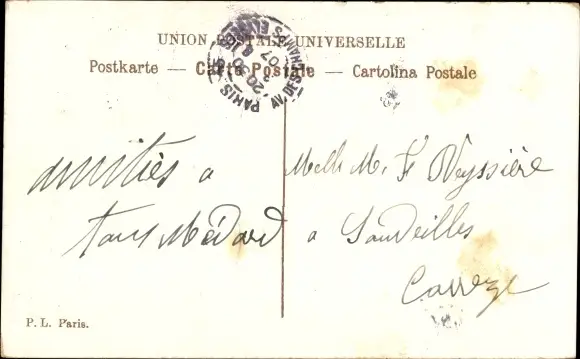 UNION POSTALE UNIVERSELLE
Postkarte — Carte Postale — Cartolina Postale
PARIS
AV. DES CHAMPS ELYSEES
20 30
07
amitiés a
tous Médard
Melle M. F Veyssière
a Soudeilles
Corrèze
P. L. Paris.